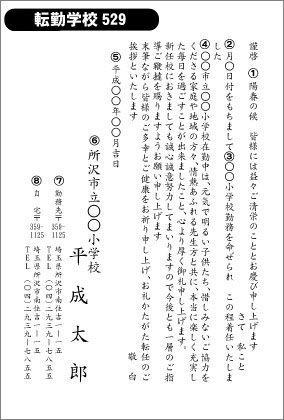 転勤学校 529
謹啓 ①陽春の候 皆様には益々ご清栄のこととお慶び申し上げます
さて 私こと
②月〇日付をもちまして③〇〇小学校勤務を命ぜられ この程着任いたしま
した
④〇〇市立〇〇小学校在勤中は、元気で明るい子供たち、惜しみないご協力を
くださる家庭や地域の方々、情熱あふれる先生方と共に、本当に楽しく充実し
た毎日を過ごすことが出来ましたこと、心より厚く御礼申し上げます。
新任校におきましても誠心誠意努力してまいりますので今後とも一層のご指
導ご鞭撻を賜りますようお願い申し上げます
末筆ながら皆様のご多幸とご健康をお祈り申し上げ、お礼かたがた転任のご
挨拶といたします
敬白
⑤平成〇〇年〇〇月吉日
⑥所沢市立〇〇小学校
平成太郎
⑦勤務先〒359-1125 埼玉県所沢市南住吉一-一五
TEL (〇四)二九三九-七八五五
⑧自宅〒359-1125 埼玉県所沢市南住吉一-一五
TEL (〇四)二九三九-七八五五